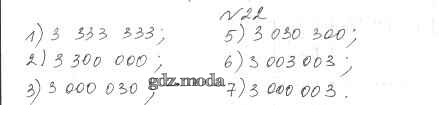 №22
1) 3 333 333;
2) 3 300 000;
3) 3 000 030;
5) 3 030 300;
6) 3 003 003;
7) 3 000 003.
gdz.moda